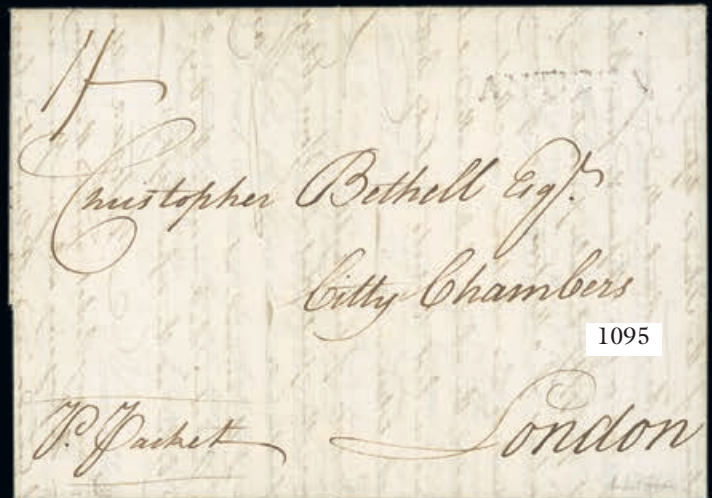 1/
Christopher Bethell Esqr.
Citty Chambers
1095
Pr. Packet
London